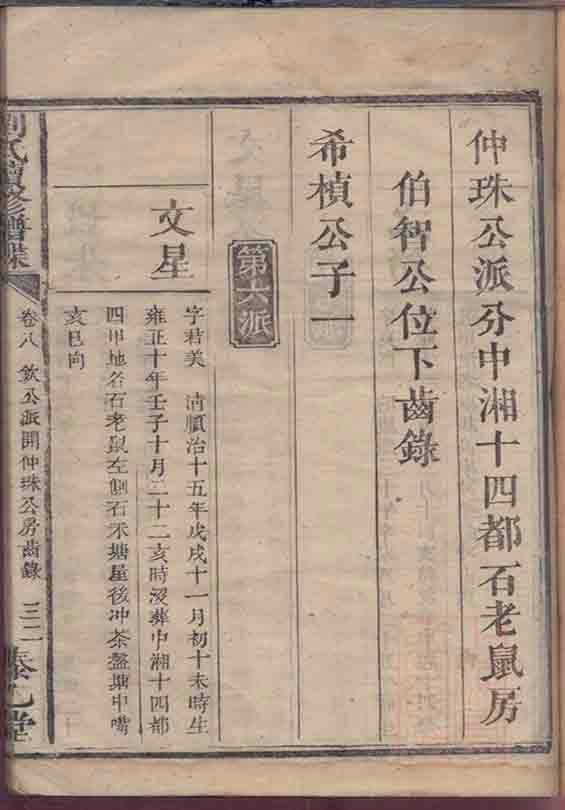 仲珠公派分中湘十四都石老鼠房
伯智公位下齒錄
希楨公子一
第六派
文星
字君美 清順治十五年戊戌十一月初十未時生
雍正十年壬子十月二十二亥時沒葬中湘十四都
四甲地名石老鼠左側石禾塘屋後冲茶盤塘中嘴
亥巳向
氏續修譜牒
卷八 欽公派開仲珠公房齒錄 三二